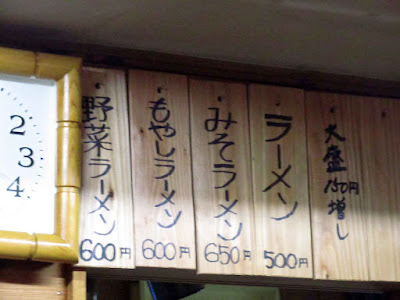 2
3
4
野菜ラーメン
600円
もやしラーメン
600円
みそラーメン
650円
ラーメン
500円
大盛
150円
増し